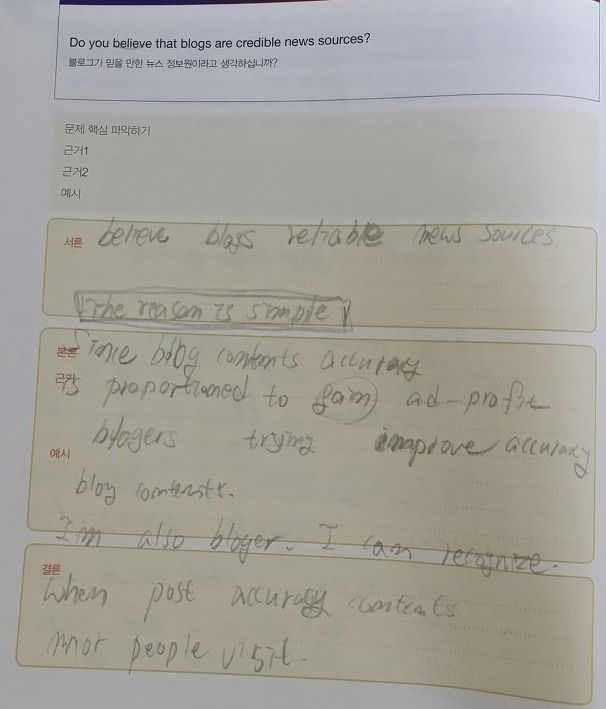 Do you believe that blogs are credible news sources?
블로그가 믿을 만한 뉴스 정보원이라고 생각하십니까?
문제 핵심 파악하기
근거1
근거2
예시
서론 believe blogs reliable news sources.
The reason is simple
본론 Since blog contents accuracy
근거 is proportioned to gain ad-profit
blogers trying improve accuracy
예시
blog contents.
I'm also bloger. I can recognize.
결론
When post accuracy contents
mor people visit.